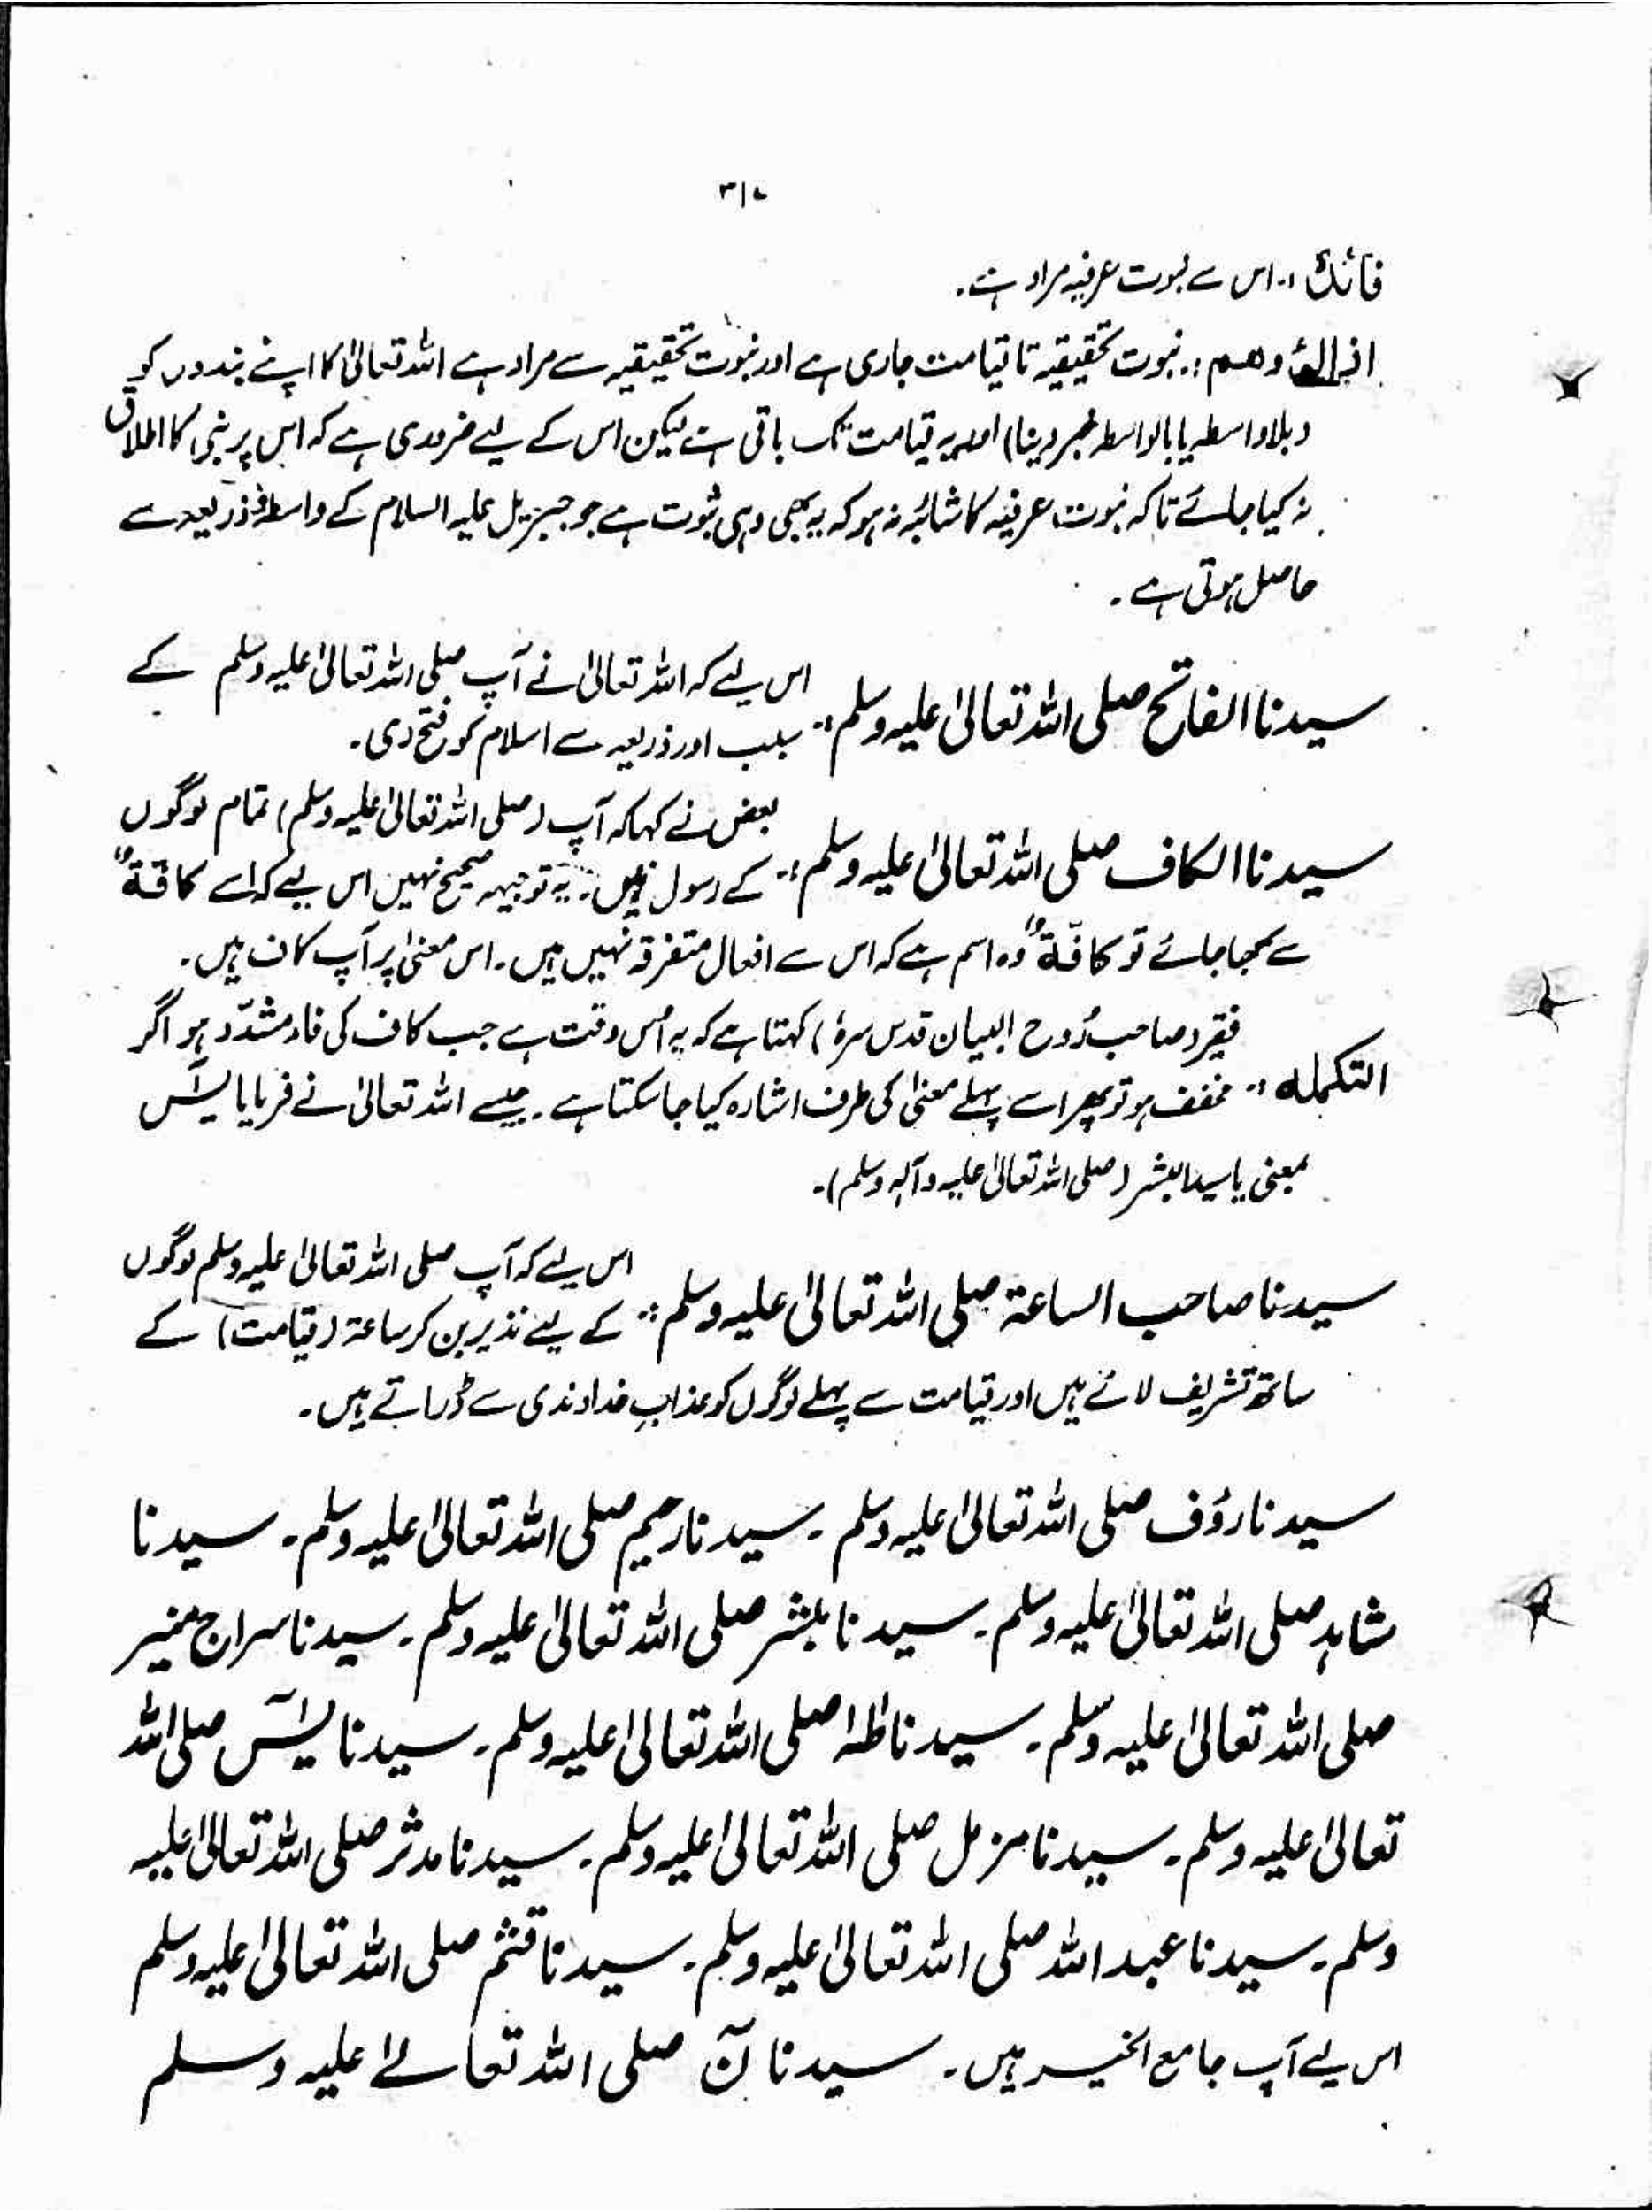 ۳۱۷
فائدہ :۔ اس سے نبوت عرفیہ مراد ہے۔
ازالۂ وہم :۔ نبوت تحقیقیہ تا قیامت جاری ہے اور نبوت تحقیقیہ سے مراد ہے اللہ تعالیٰ کا اپنے بندوں کو
(بلاواسطہ یا بالواسطہ خبر دینا) اور یہ قیامت تک باقی ہے لیکن اس کے لیے ضروری ہے کہ اس پر نبی کا اطلاق
نہ کیا جائے تاکہ نبوت عرفیہ کا شائبہ نہ ہو کہ یہ بھی وہی نبوت ہے جو جبریل علیہ السلام کے واسطہ و ذریعہ سے
حاصل ہوتی ہے۔
سیدنا الفاتح صلی اللہ تعالیٰ علیہ وسلم :۔ اس لیے کہ اللہ تعالیٰ نے آپ صلی اللہ تعالیٰ علیہ وسلم کے
سبب اور ذریعہ سے اسلام کو فتح دی۔
سیدنا الکاف صلی اللہ تعالیٰ علیہ وسلم :۔ بعض نے کہا کہ آپ (صلی اللہ تعالیٰ علیہ وسلم) تمام لوگوں
کے رسول ہیں۔ یہ توجیہہ صحیح نہیں اس لیے کہ اسے کافۃً
سے سمجھا جائے تو کافّۃً وہ اسم ہے کہ اس سے افعال متفرقہ نہیں ہیں۔ اس معنیٰ پر آپ کاف ہیں۔
التکملہ :۔ فقیر (صاحب رُوح البیان قدس سرہٗ) کہتا ہے کہ یہ اُس وقت ہے جب کاف کی فاء مشدّد ہو اگر
مخفف ہو تو پھر اسے پہلے معنیٰ کی طرف اشارہ کیا جا سکتا ہے۔ جیسے اللہ تعالیٰ نے فرمایا یٰسٓ
بمعنی یا سید البشر (صلی اللہ تعالیٰ علیہ وآلہ وسلم)۔
سیدنا صاحب الساعۃ صلی اللہ تعالیٰ علیہ وسلم :۔ اس لیے کہ آپ صلی اللہ تعالیٰ علیہ وسلم لوگوں
کے لیے نذیر بن کر ساعۃ (قیامت) کے
ساتھ تشریف لائے ہیں اور قیامت سے پہلے لوگوں کو عذابِ خداوندی سے ڈراتے ہیں۔
سیدنا رؤف صلی اللہ تعالیٰ علیہ وسلم ۔ سیدنا رحیم صلی اللہ تعالیٰ علیہ وسلم۔ سیدنا
شاہد صلی اللہ تعالیٰ علیہ وسلم۔ سیدنا مبشر صلی اللہ تعالیٰ علیہ وسلم۔ سیدنا سراج منیر
صلی اللہ تعالیٰ علیہ وسلم۔ سیدنا طٰہٰ صلی اللہ تعالیٰ علیہ وسلم۔ سیدنا یٰسٓ صلی اللہ
تعالیٰ علیہ وسلم۔ سیدنا مزمل صلی اللہ تعالیٰ علیہ وسلم۔ سیدنا مدثر صلی اللہ تعالیٰ علیہ
وسلم۔ سیدنا عبد اللہ صلی اللہ تعالیٰ علیہ وسلم۔ سیدنا قثم صلی اللہ تعالیٰ علیہ وسلم
اس لیے آپ جامع الخیر ہیں۔ سیدنا نٓ صلی اللہ تعالےٰ علیہ وسلم